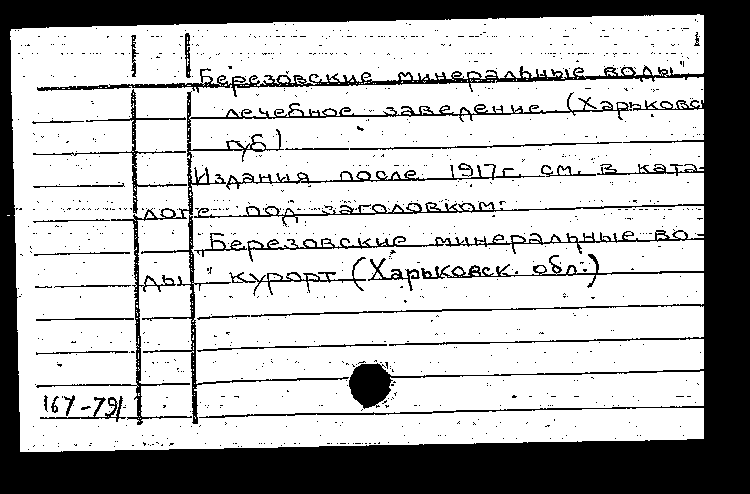 „Березовские минеральные воды",
лечебное заведение (Харьковс
губ)
Издания после 1917г. см. в ката-
логе под заголовком:
„Березовские минеральные во-
ды," курорт (Харьковск. обл.)
167-791